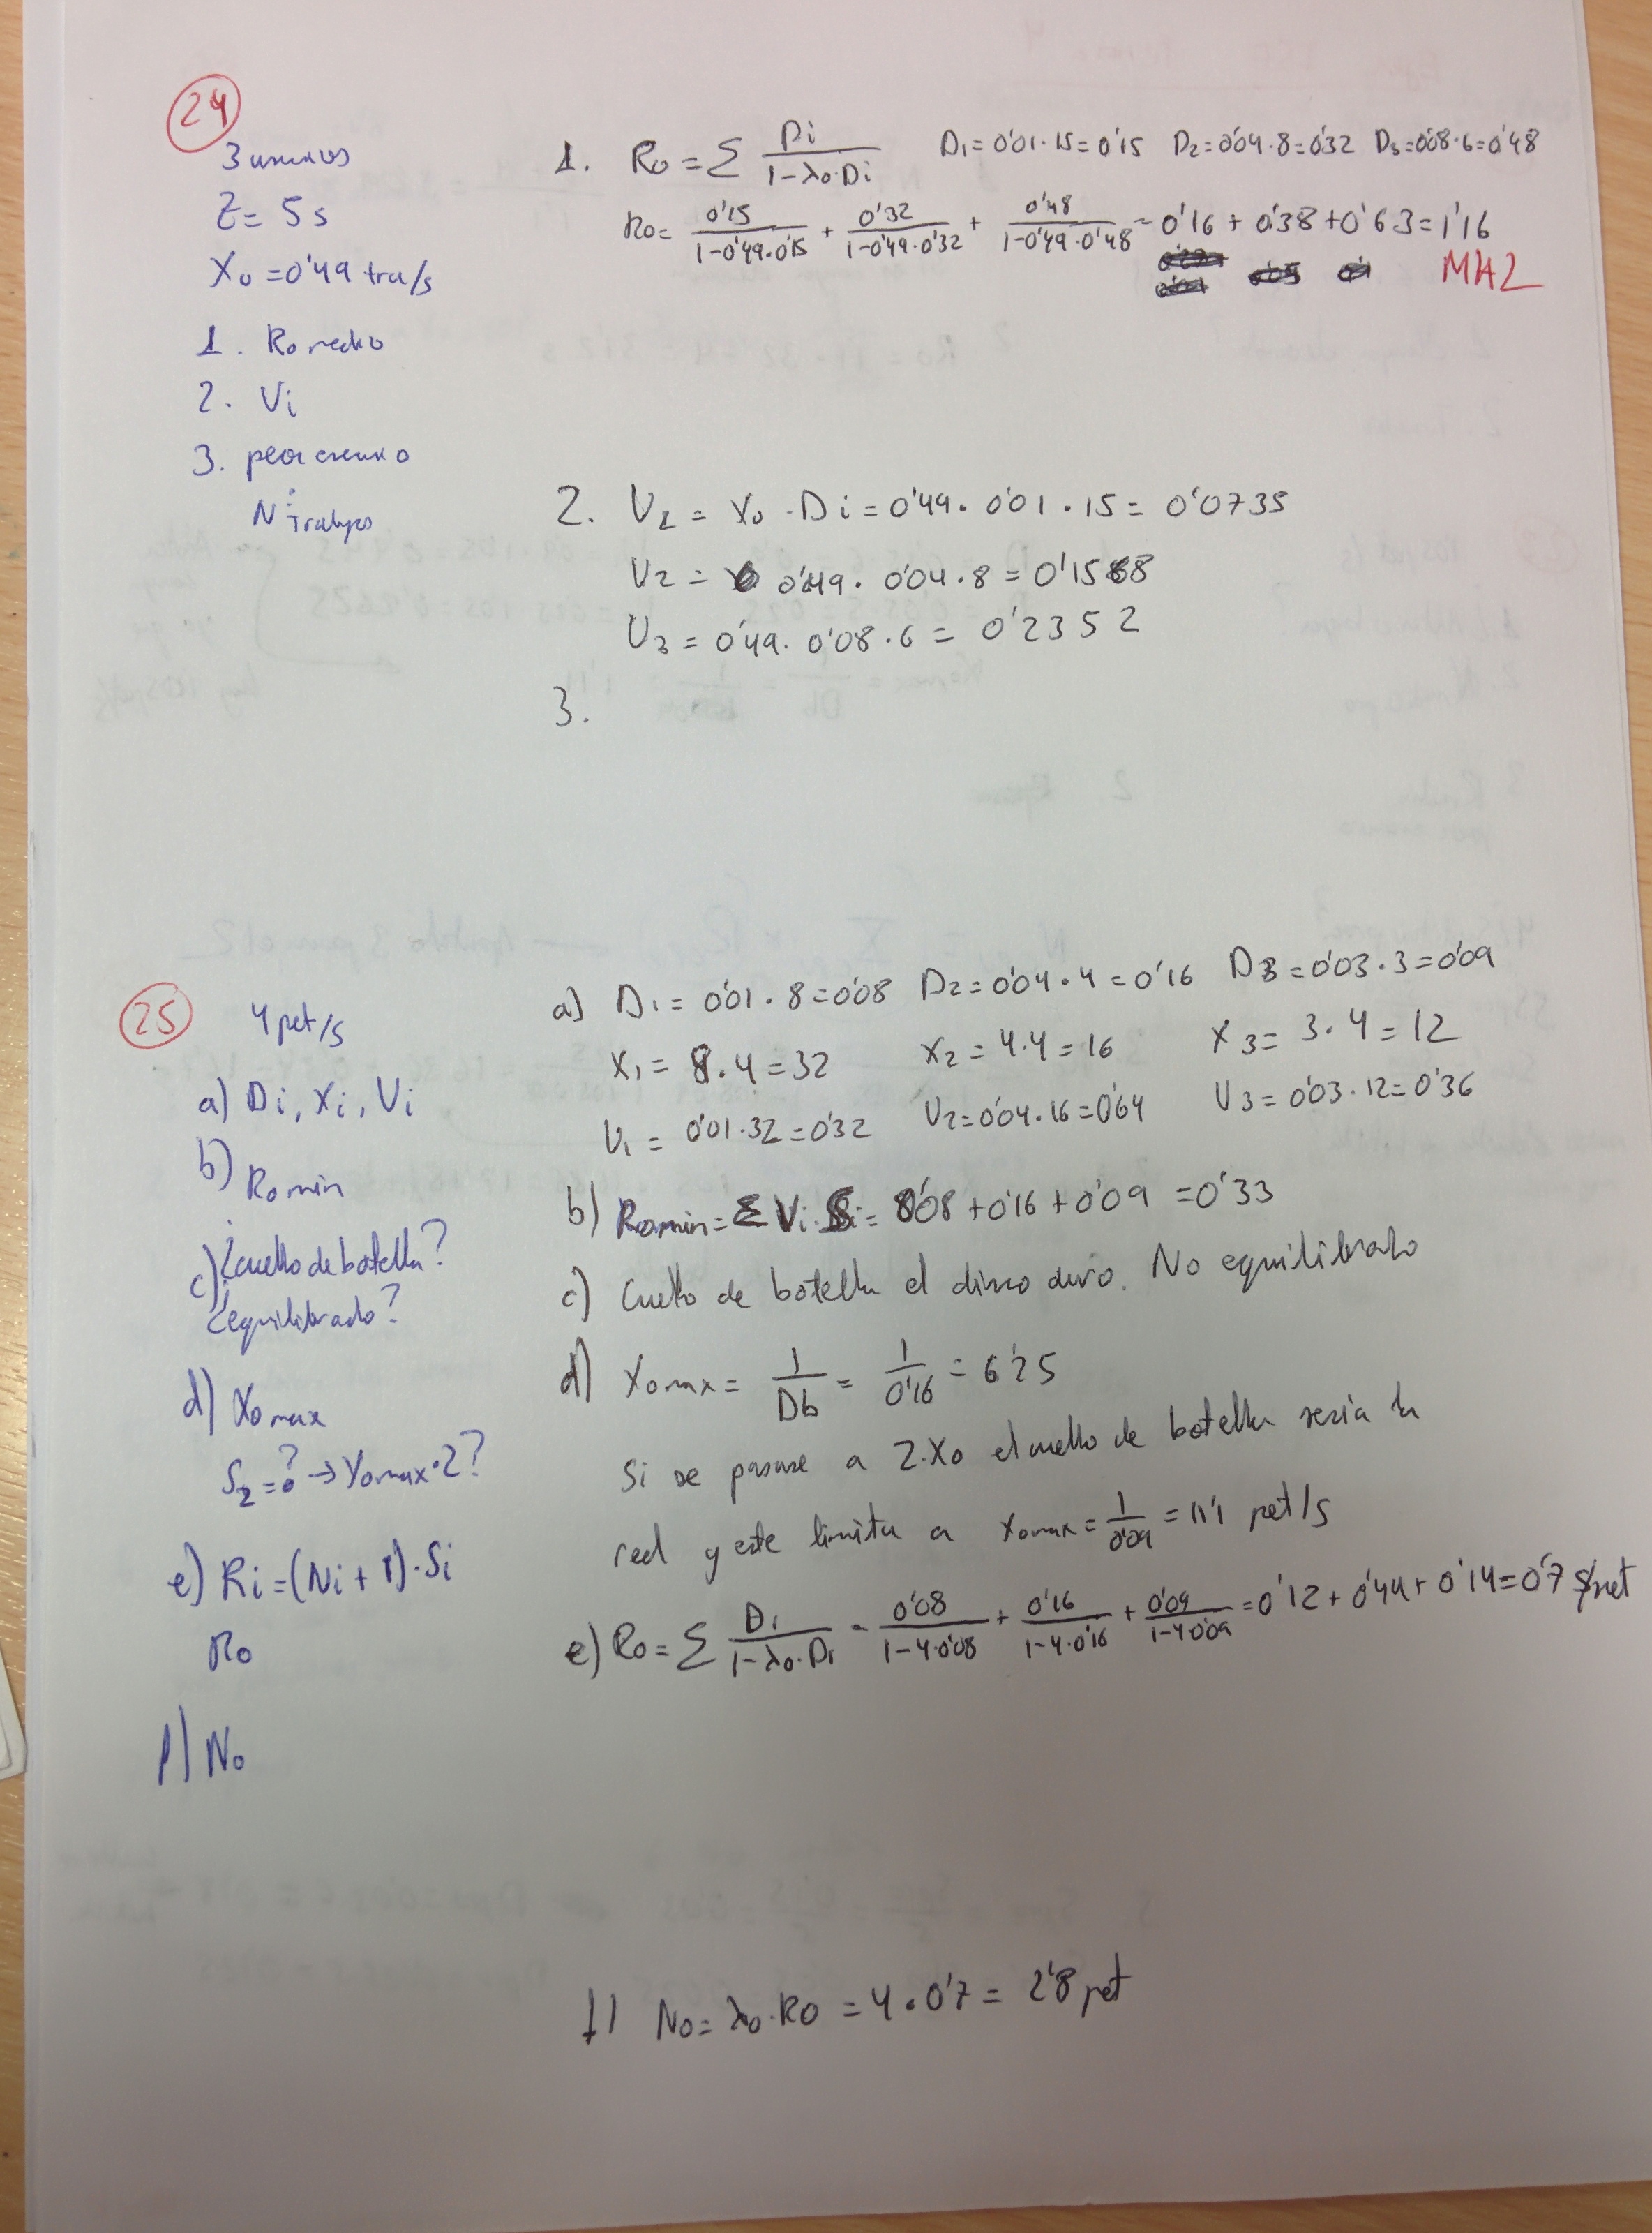 24
3 usuarios
Z = 5 s
X0 = 0'49 tra/s
1. Ro medio
2. Vi
3. peor escenario
Nº trabajos
1. Ro = Σ Di / 1-λo·Di   D1 = 0'01·15 = 0'15   D2 = 0'04·8 = 0'32   D3 = 0'08·6 = 0'48
Ro = 0'15 / 1-0'49·0'15 + 0'32 / 1-0'49·0'32 + 0'48 / 1-0'49·0'48 = 0'16 + 0'38 + 0'63 = 1'16
MAL
2. U1 = X0 · Di = 0'49 · 0'01 · 15 = 0'0735
U2 = 0'49 · 0'04 · 8 = 0'1568
U3 = 0'49 · 0'08 · 6 = 0'2352
3.
25
4 pet/s
a) Di, Xi, Ui
b) Ro min
c) ¿cuello de botella?
¿equilibrado?
d) Xo max
S2 = ? → Xomax·2?
e) Ri = (Ni + 1)·Si
Ro
f) No
a) D1 = 0'01 · 8 = 0'08   D2 = 0'04 · 4 = 0'16   D3 = 0'03 · 3 = 0'09
X1 = 8 · 4 = 32   X2 = 4·4 = 16   X3 = 3·4 = 12
U1 = 0'01·32 = 0'32   U2 = 0'04·16 = 0'64   U3 = 0'03·12 = 0'36
b) Romin = Σ Vi · Si = 0'08 + 0'16 + 0'09 = 0'33
c) Cuello de botella el disco duro. No equilibrado
d) Xomax = 1 / Db = 1 / 0'16 = 6'25
Si se pasase a 2·X0 el cuello de botella sería la
red y este limita a Xomax = 1 / 0'09 = 11'1 pet/s
e) Ro = Σ Di / 1-λo·Di = 0'08 / 1-4·0'08 + 0'16 / 1-4·0'16 + 0'09 / 1-4·0'09 = 0'12 + 0'44 + 0'14 = 0'7 s/pet
f) No = λo·Ro = 4·0'7 = 2'8 pet